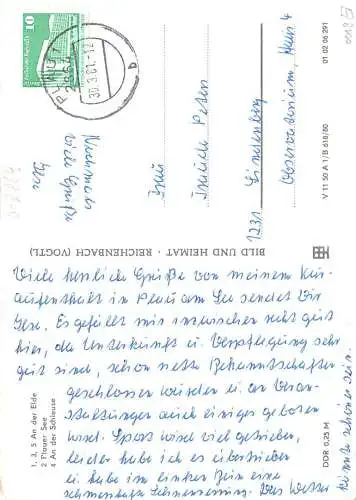 1, 3, 5 An der Elde
2 Plauer See
4 An der Schleuse
Viele herzliche Grüße von meinem Kur-
aufenthalt in Plau am See sendet Dir
Ilse. Es gefällt mir inzwischen recht gut
hier, da Unterkunft u. Verpflegung sehr
gut sind, schon nette Bekanntschaften
geschlossen wurden u. an Veran-
staltungen auch einiges geboten
wird. Sport wird viel getrieben,
leider habe ich es übertrieben
u. habe im linken Bein eine
schmerzhafte Das Wetter
ist heute schöner
Nochmals
viele Grüße
Ilse
BILD UND HEIMAT · REICHENBACH (VOGTL)
DDR 0,25 M
V 11 50 A 1/B 618/80
01 02 06 291
10
PLAU 1
2864
30.3.81.-12
a
Frau
Traude Peters
1231 Lindenberg
Observatorium, Haus 4